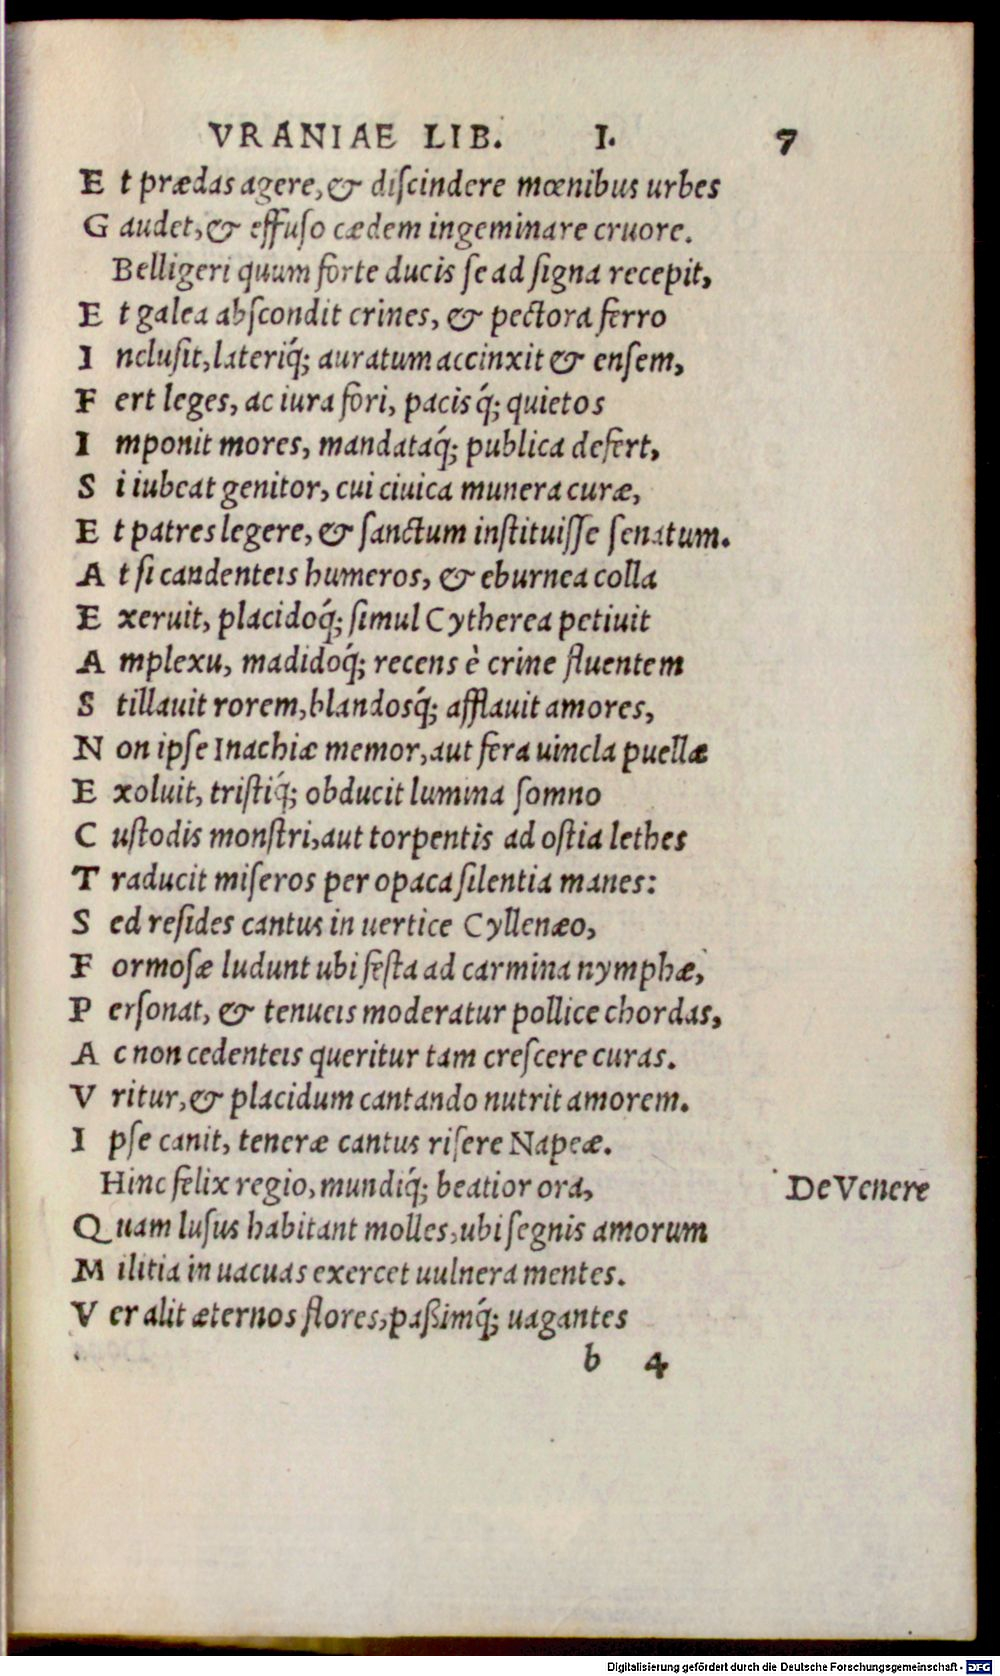 VRANIAE LIB. I. 7
E t prædas agere, & diſcindere mœnibus urbes
G audet, & effuſo cædem ingeminare cruore.
Belligeri quum forte ducis ſe ad ſigna recepit,
E t galea abſcondit crines, & pectora ferro
I ncluſit, lateriq́; auratum accinxit & enſem,
F ert leges, ac iura fori, pacis q́; quietos
I mponit mores, mandataq́; publica defert,
S i iubeat genitor, cui ciuica munera curæ,
E t patres legere, & ſanctum inſtituiſſe ſenatum.
A t ſi candenteis humeros, & eburnea colla
E xeruit, placidoq́; ſimul Cytherea petiuit
A mplexu, madidoq́; recens è crine fluentem
S tillauit rorem, blandosq́; afflauit amores,
N on ipſe Inachiæ memor, aut fera uincla puellæ
E xoluit, triſtiq́; obducit lumina ſomno
C uſtodis monſtri, aut torpentis ad oſtia lethes
T raducit miſeros per opaca ſilentia manes:
S ed reſides cantus in uertice Cyllenæo,
F ormoſæ ludunt ubi feſta ad carmina nymphæ,
P erſonat, & tenueis moderatur pollice chordas,
A c non cedenteis queritur tam creſcere curas.
V ritur, & placidum cantando nutrit amorem.
I pſe canit, teneræ cantus riſere Napeæ.
Hinc felix regio, mundiq́; beatior ora, De Venere
Q uam luſus habitant molles, ubi ſegnis amorum
M ilitia in uacuas exercet uulnera mentes.
V er alit æternos flores, paßimq́; uagantes
b 4
Digitalisierung gefördert durch die Deutsche Forschungsgemeinschaft - DFG